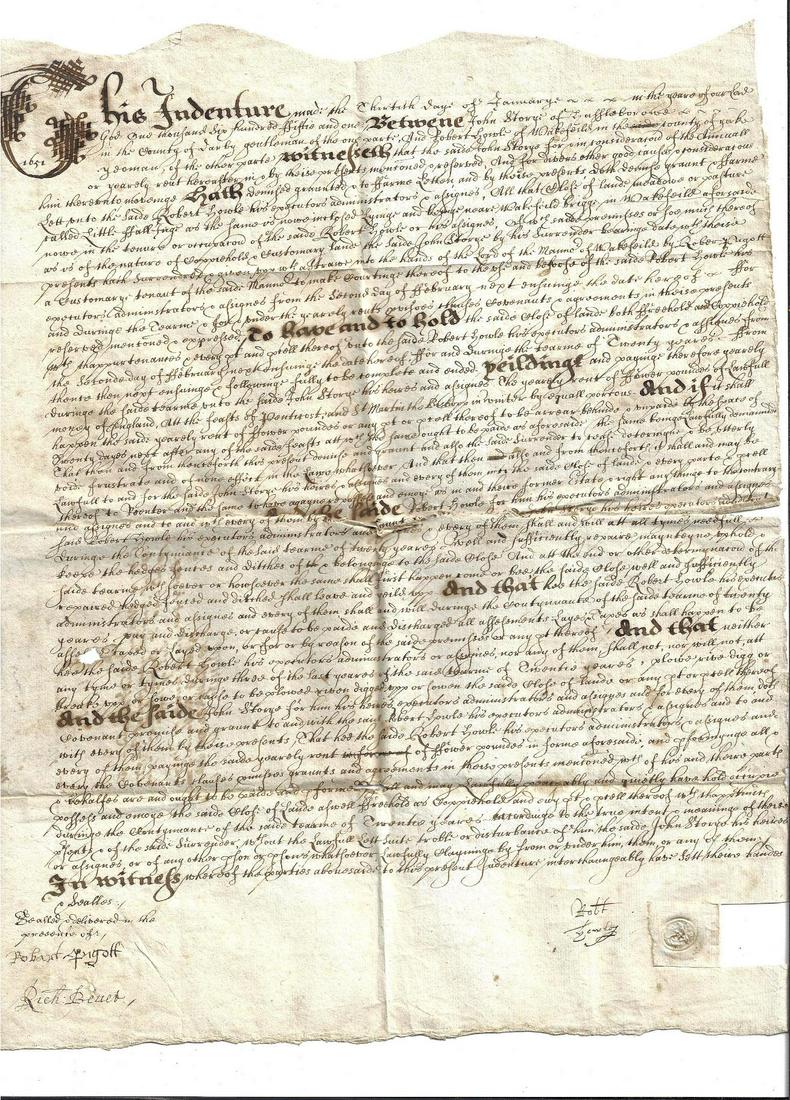 This Indenture made the Thirtith daye of Januarye in the yeare of our Lord
God One thousand Six hundred fiftie and one Betwene John Storye of
1651
in the County of Darby gentleman of the one parte, And Robert Howle of Wakefeild in the County of yorke
yeoman, of the other parte witnesseth that the said John Storye for & in consideracon of the Annuall
or yearely rent hereafter in & by theise presents mencioned & reserved, And for divers other good causes & consideracons
him therevnto moveinge Hath demised graunted & to ffarme Letten and by theise presents doth demise graunt & ffarme
Lett vnto the saide Robert Howle his executors administrators & assignes, All that Close of lande meadowe or pasture
called Little ffall Inge as the same is nowe lyinge and beinge neare Wakefeild bridge in Wakefeild aforesaide
nowe in the tenure or occupacon of the saide Robert Howle or his assignes, premisses or soe much thereof
as is of the nature of Coppiehold or Customary lande the saide John Storye by his Surrender bearinge date with theise
presents hath Surrendred & given vpp into the hands of the Lord of the Mannor of Wakefeild by Robert Pigott
a Customarye tenant of the said Mannor to make Courtinge thereof to the vse and behoofe of the saide Robert Howle his
executors administrators & assignes from the Second day of ffebruary next ensuinge the date hereof ffor
and duringe the Tearme & for & vnder the yearely rents Covenants & agreements in theise presents
reserved mentioned & expressed To have and to hold the saide Close of lande both ffreehold and Coppiehold
with thappurtenances & every pt and pcell thereof vnto the saide Robert Howle his executors administrators & assignes from
the Seconde day of ffebruary next ensuinge the date hereof ffor and Duringe the tearme of Twenty yeares ffrom
thence then next ensuinge & followinge fully to be complete and ended yeildinge and payinge therefore yearely
duringe the saide tearme vnto the saide John Storye his heires and assignes The yearely rent of ffower poundes of lawfull
money of England, Att the feasts of Pentecost, and St Martin the Bishopp in winter by equall portions And if it shall
happen the saide yearely rent of ffower poundes or any pt or pcell thereof to be arreare behinde & vnpaide by the space of
Twenty dayes next after any of the saide feasts att wch the same ought to be paide as aforesaide the same beinge lawfully demaunded
That then and from thenceforth this present demise and graunt and also the saide Surrender to cease determyne & be vtterly
voide frustrate and of none effect in the Lawe whatsoever, And that then also and from thenceforth it shall and may be
Lawfull to and for the saide John Storye his heires & assignes and every of them into the saide Close of lande & every parte & pcell
thereof to Reenter and the same to have againe repossesse and enioye as in and theire former Estate right any thinge to the contrary
And the saide Robert Howle for him his executors administrators and assignes
and assignes and to and with every of them by John Storye his heires executors
said Robert Howle his executors administrators and assignes & every of them shall and will att all tymes needfull
duringe the Contynuance of the saide tearme of twenty yeares well and sufficiently repaire maynteyne vphold &
keepe the hedges fences and ditches of & belongeinge to the saide Close And att the end or other determynacon of the
saide tearme whensoever or howsoever the same shall first happen come or bee the saide Close well and sufficiently
repaired hedged fenced and ditched shall leave and yeild vpp And that hee the saide Robert Howle his executors
administrators and assignes and every of them shall and will duringe the Contynuance of the saide tearme of twenty
yeares pay and discharge, or cause to be paide and discharged all assessments Layes & Taxes as shall happen to be
assessed taxed or layed vpon, or for or by reason of the saide premisses or any pt thereof And that neither
hee the saide Robert Howle his executors administrators or assignes, nor any of them, shall not, nor will not att
any tyme or tymes duringe three of the last yeares of the said tearme of Twentie yeares, plowe rive digg or
breake vpp or sowe or cause to be plowed riven digged vpp or sowen the saide Close of lande or any pt or pcell thereof
And the saide John Storye for him his heires executors administrators and assignes and for every of them doth
Covenant promise and graunt to and with the said Robert Howle his executors administrators & assignes and to and
with every of them by theise presents, That hee the saide Robert Howle his executors administrators & assignes and
every of them payinge the saide yearely rent of ffower poundes in forme aforesaide, and pformynge all &
every the Covenants Clauses provisoes graunts and agreements in theise presents mentioned wch of his and theire parts
& behalfes are and ought to be paide and pformed shall and may Lawfully peaceably and quietly have hold occupie
possess and enioye the saide Close of Lande aswell ffreehold as Coppiehold and every pt & pcell thereof with thappurtenances
duringe the Contynuance of the said tearme of Twentie yeares accordinge to the true intent & meaninge of theise
presents & of the saide Surrender, without the Lawfull Lett suite troble or disturbance of him the saide John Storye his heires
or assignes, or of any other pson or psons whatsoever Lawfully claymeinge by from or vnder him, them, or any of theim
In witness whereof the parties abovesaide to this present Indenture interchangeably have sett theire handes
& Sealles
Sealled & delivered in the
presence of
Robert Pigott
Robt
Howle